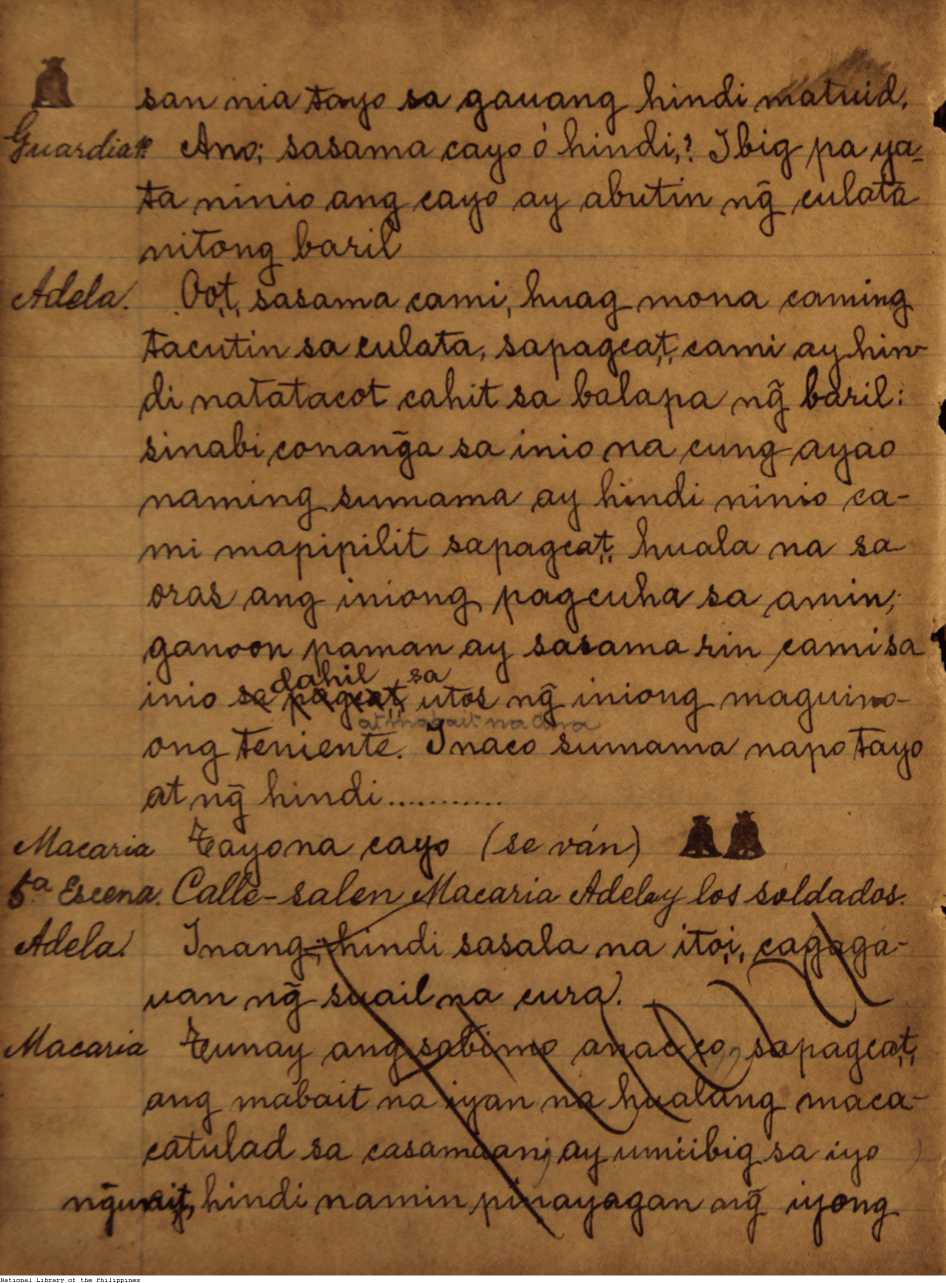 san nia tayo sa gauang hindi matuid.
Guardia 1º Ano; sasama cayo ó hindi,? Ibig pa ya-
ta ninio ang cayo ay abutin ng̃ culata
nitong baril
Adela. Oo,t, sasama cami, huag mona caming
tacutin sa culata, sapagca,t, cami ay hin-
di natatacot cahit sa balapa ng̃ baril:
sinabi conang̃a sa inio na cung ayao
naming sumama ay hindi ninio ca-
mi mapipilit sapagca,t, huala na sa
oras ang iniong pagcuha sa amin;
ganoon paman ay sasama rin cami sa
dahil sa
inio sapagca,t, utos ng̃ iniong maguino-
at mabait na Cura
ong teniente. Inaco sumama napo tayo
at ng̃ hindi...........
Macaria Tayona cayo (se ván)
5.ª Escena. Calle-salen Macaria Adela y los soldados.
Adela. Inang, hindi sasala na ito,i, cagaga-
uan ng̃ suail na cura.
Macaria Tunay ang sabimo anac co, sapagca,t,
ang mabait na iyan na hualang maca-
catulad sa casamaan, ay umiibig sa iyo
ng̃uni,t, hindi namin pinayagan ng̃ iyong
National Library of the Philippines